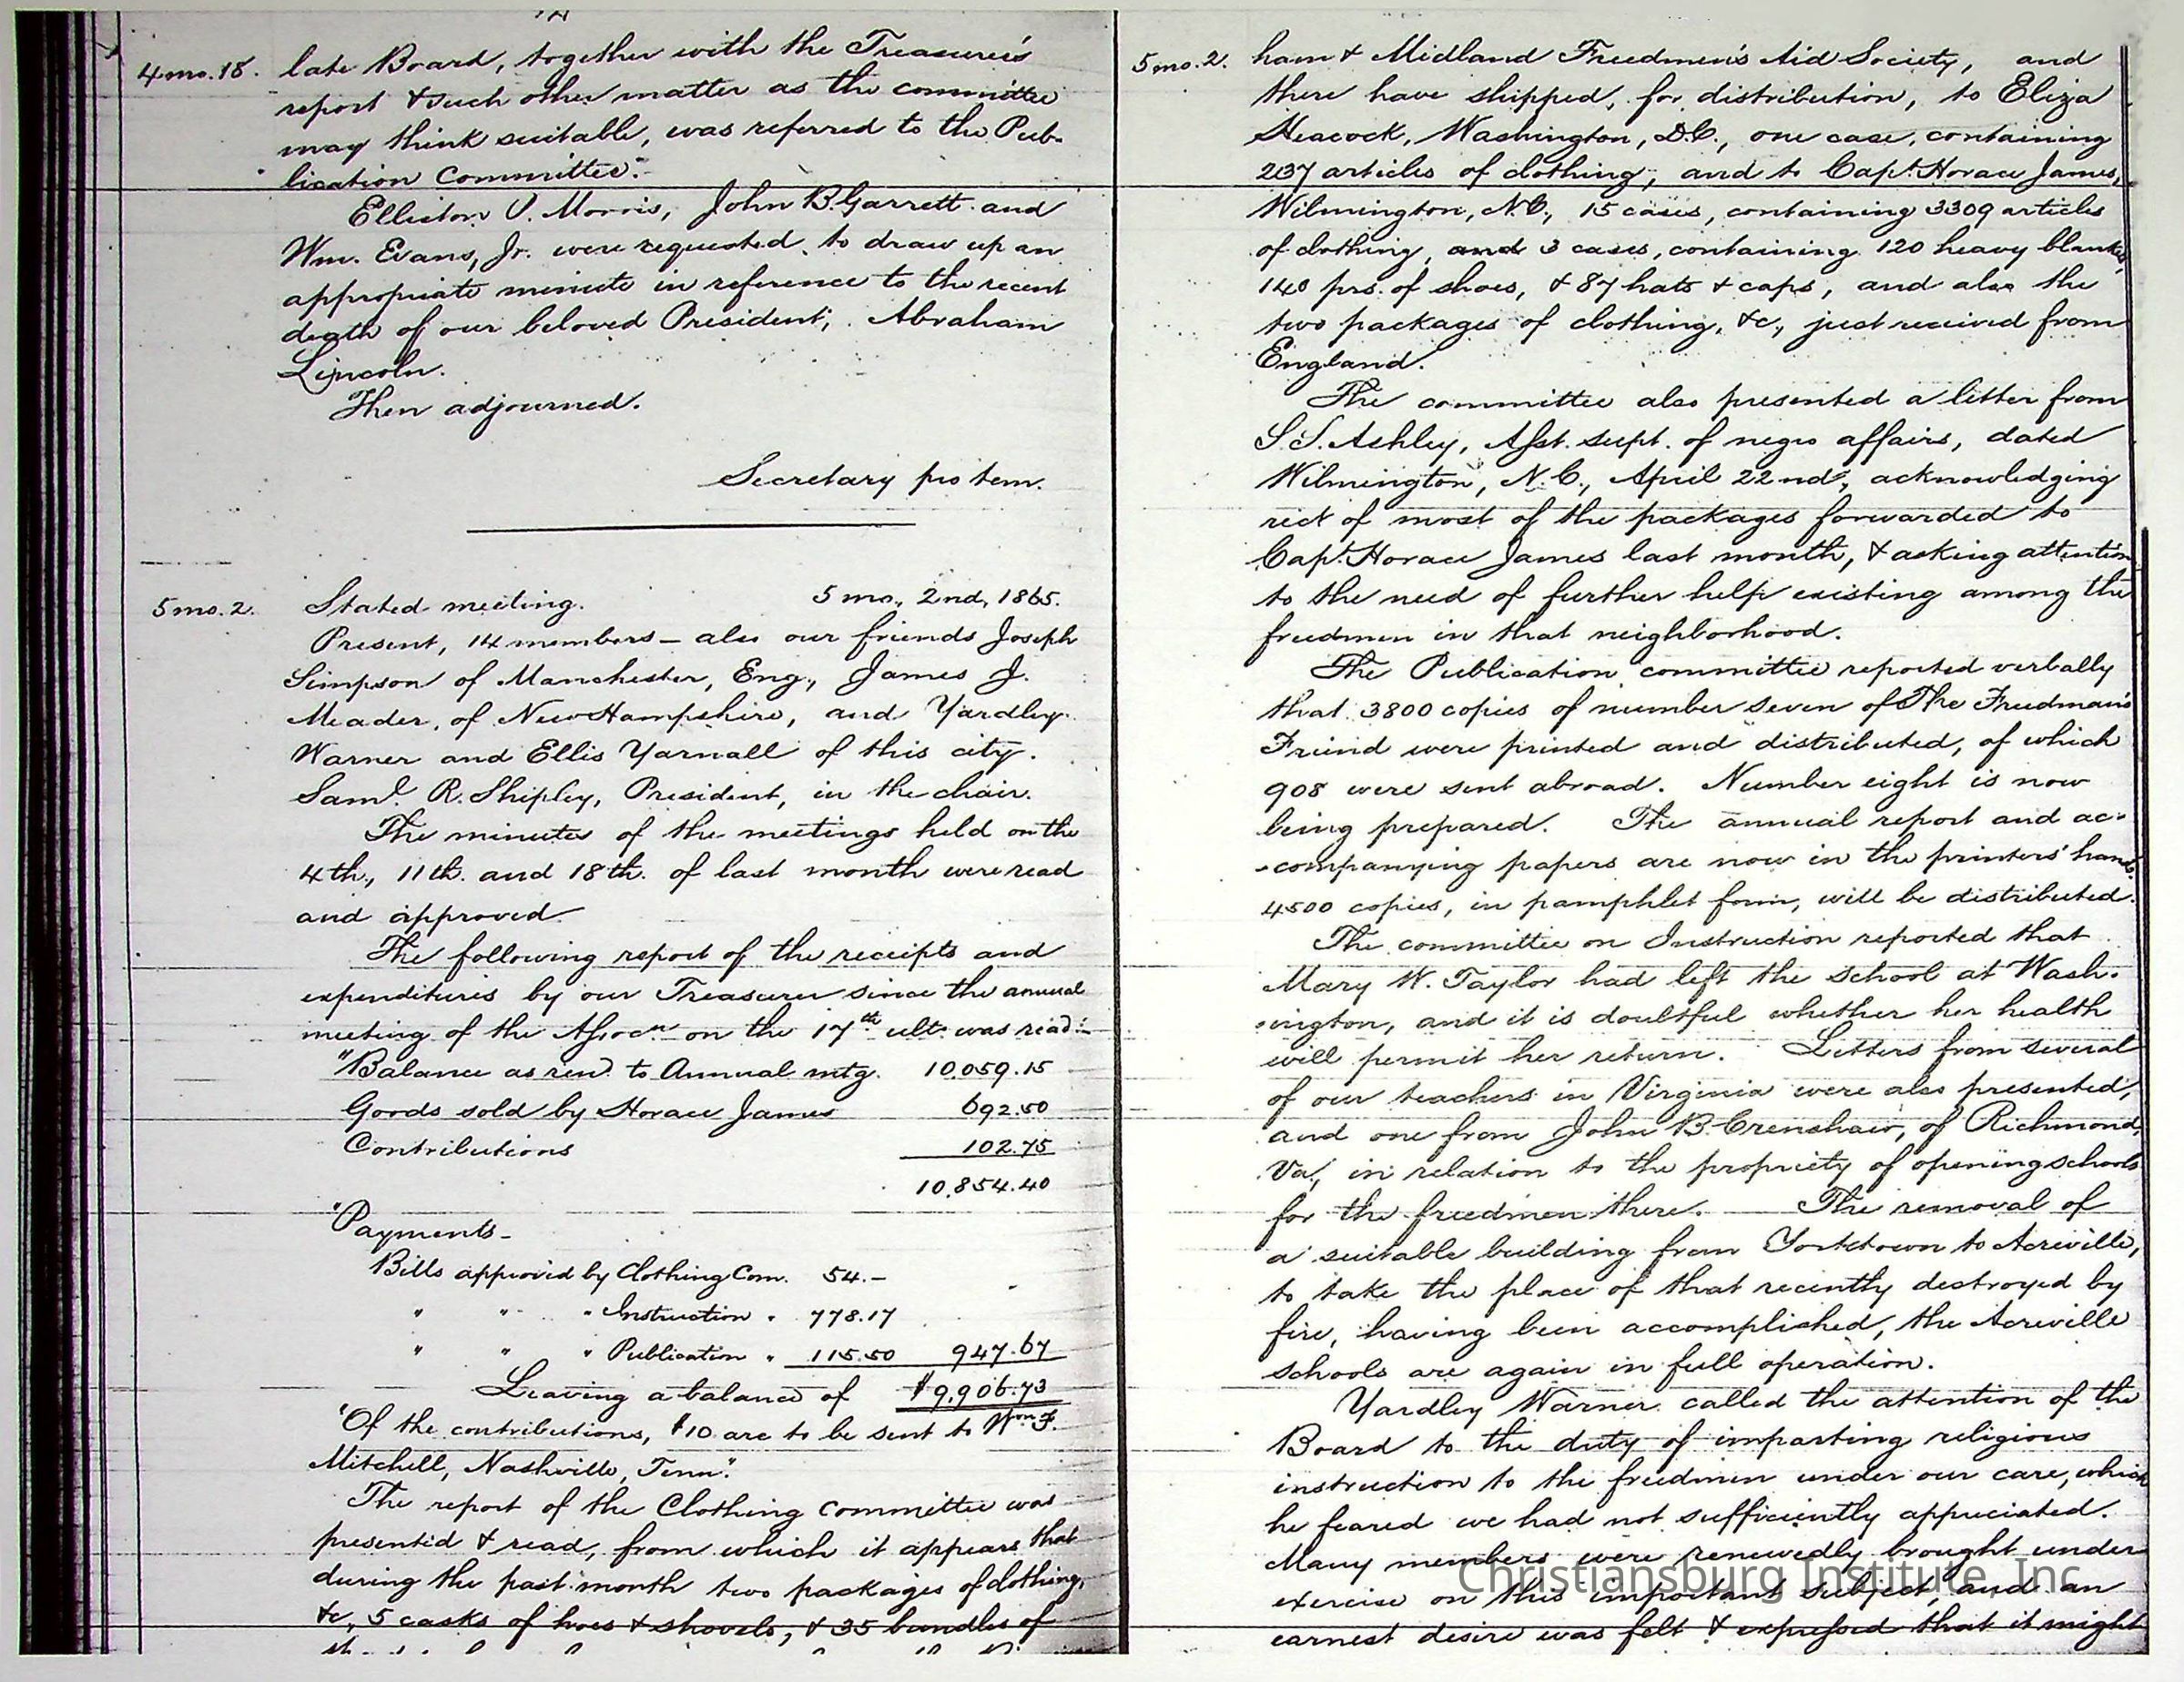 4 mo. 18. late Board, together with the Treasurer's
report & such other matter as the committee
may think suitable, was referred to the Pub-
lication Committee."
Elliston P. Morris, John B. Garrett and
Wm. Evans, Jr. were requested to draw up an
appropriate minute in reference to the recent
death of our beloved President, Abraham
Lincoln.
Then adjourned.
Secretary pro tem.
5 mo. 2. Stated meeting. 5 mo., 2nd, 1865.
Present, 14 members – also our friends Joseph
Simpson of Manchester, Eng., James J.
Meader, of New Hampshire, and Yardley
Warner and Ellis Yarnall of this city.
Saml. R. Shipley, President, in the chair.
The minutes of the meetings held on the
4th., 11th. and 18th. of last month were read
and approved.
The following report of the receipts and
expenditures by our Treasurer since the annual
meeting of the Assocn. on the 17th ult. was read:–
"Balance as rend. to Annual mtg. 10,059.15
Goods sold by Horace James 692.50
Contributions 102.75
10,854.40
"Payments –
Bills approved by Clothing Com. 54.–
" " " Instruction " 778.17
" " " Publication " 115.50 947.67
Leaving a balance of $9,906.73
"Of the contributions, $10 are to be sent to Wm. F.
Mitchell, Nashville, Tenn."
The report of the Clothing Committee was
presented & read, from which it appears that
during the past month two packages of clothing,
&c, 5 casks of hoes & shovels, & 35 bundles of
5 mo. 2. ham & Midland Freedmen's Aid Society, and
there have shipped, for distribution, to Eliza
Heacock, Washington, D.C., one case, containing
237 articles of clothing; and to Capt. Horace James,
Wilmington, N.C., 15 cases, containing 3309 articles
of clothing, and 3 cases, containing 120 heavy blankets,
140 prs. of shoes, & 87 hats & caps, and also the
two packages of clothing, &c., just received from
England.
The committee also presented a letter from
S. S. Ashley, Asst. supt. of negro affairs, dated
Wilmington, N.C., April 22nd, acknowledging
rect of most of the packages forwarded to
Capt. Horace James last month, & asking attention
to the need of further help existing among the
freedmen in that neighborhood.
The Publication committee reported verbally
that 3800 copies of number seven of The Freedman's
Friend were printed and distributed, of which
908 were sent abroad. Number eight is now
being prepared. The annual report and ac-
-companying papers are now in the printers' hands.
4500 copies, in pamphlet form, will be distributed.
The committee on Instruction reported that
Mary W. Taylor had left the school at Wash-
-ington, and it is doubtful whether her health
will permit her return. Letters from several
of our teachers in Virginia were also presented,
and one from John B. Crenshaw, of Richmond,
Va., in relation to the propriety of opening schools
for the freedmen there. The removal of
a suitable building from Yorktown to Acreville,
to take the place of that recently destroyed by
fire, having been accomplished, the Acreville
schools are again in full operation.
Yardley Warner called the attention of the
Board to the duty of imparting religious
instruction to the freedmen under our care, which
he feared we had not sufficiently appreciated.
Many members were renewedly brought under
exercise on this important subject, and an
earnest desire was felt & expressed that it might
Christiansburg Institute, Inc